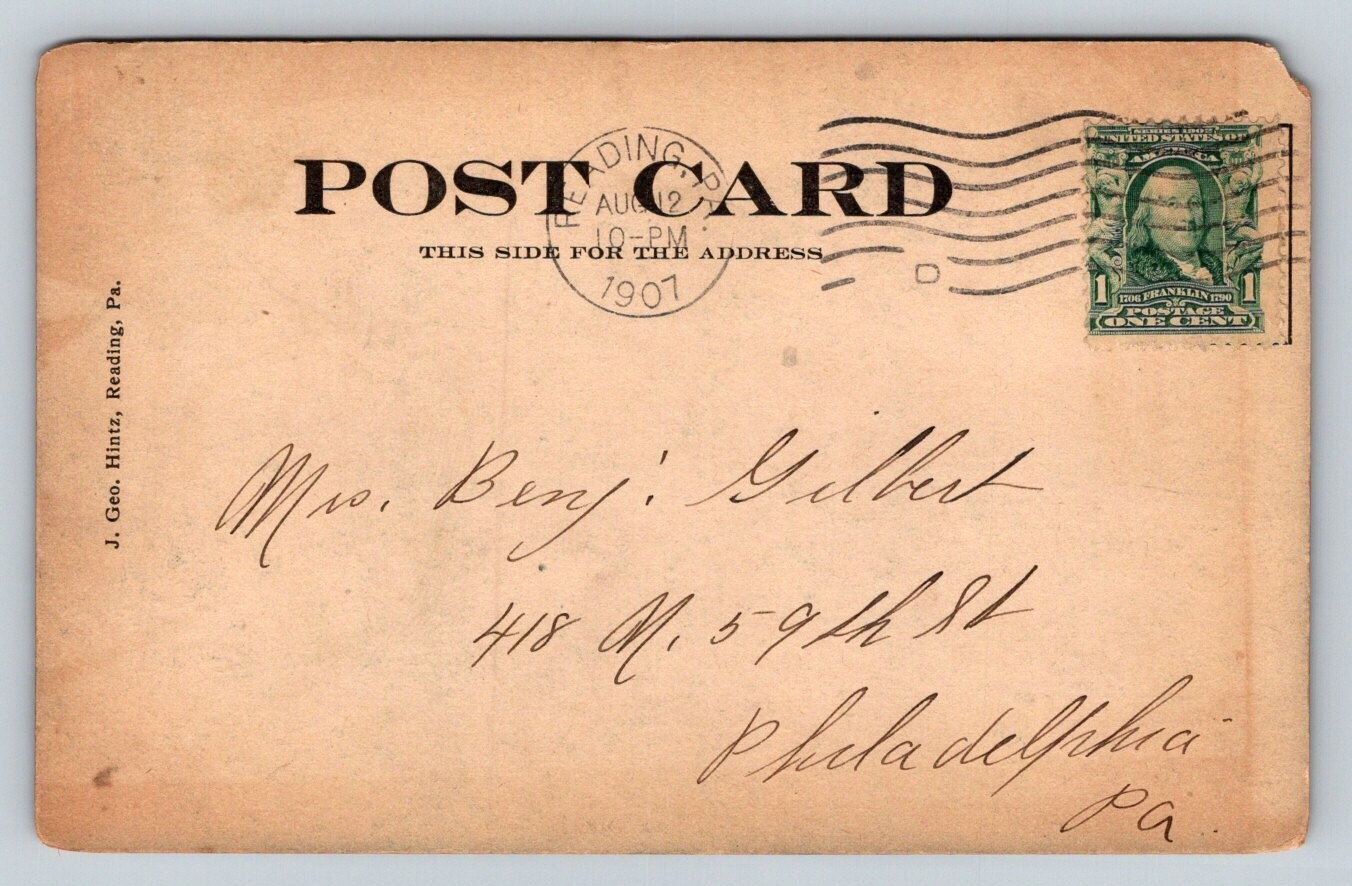 POST CARD
THIS SIDE FOR THE ADDRESS
READING, PA.
AUG 12
10-PM
1907
D
SERIES 1902
UNITED STATES OF
AMERICA
1 1706 FRANKLIN 1790 1
POSTAGE
ONE CENT
J. Geo. Hintz, Reading, Pa.
Mrs. Benj. Gilbert
418 N. 59th St
Philadelphia
Pa.